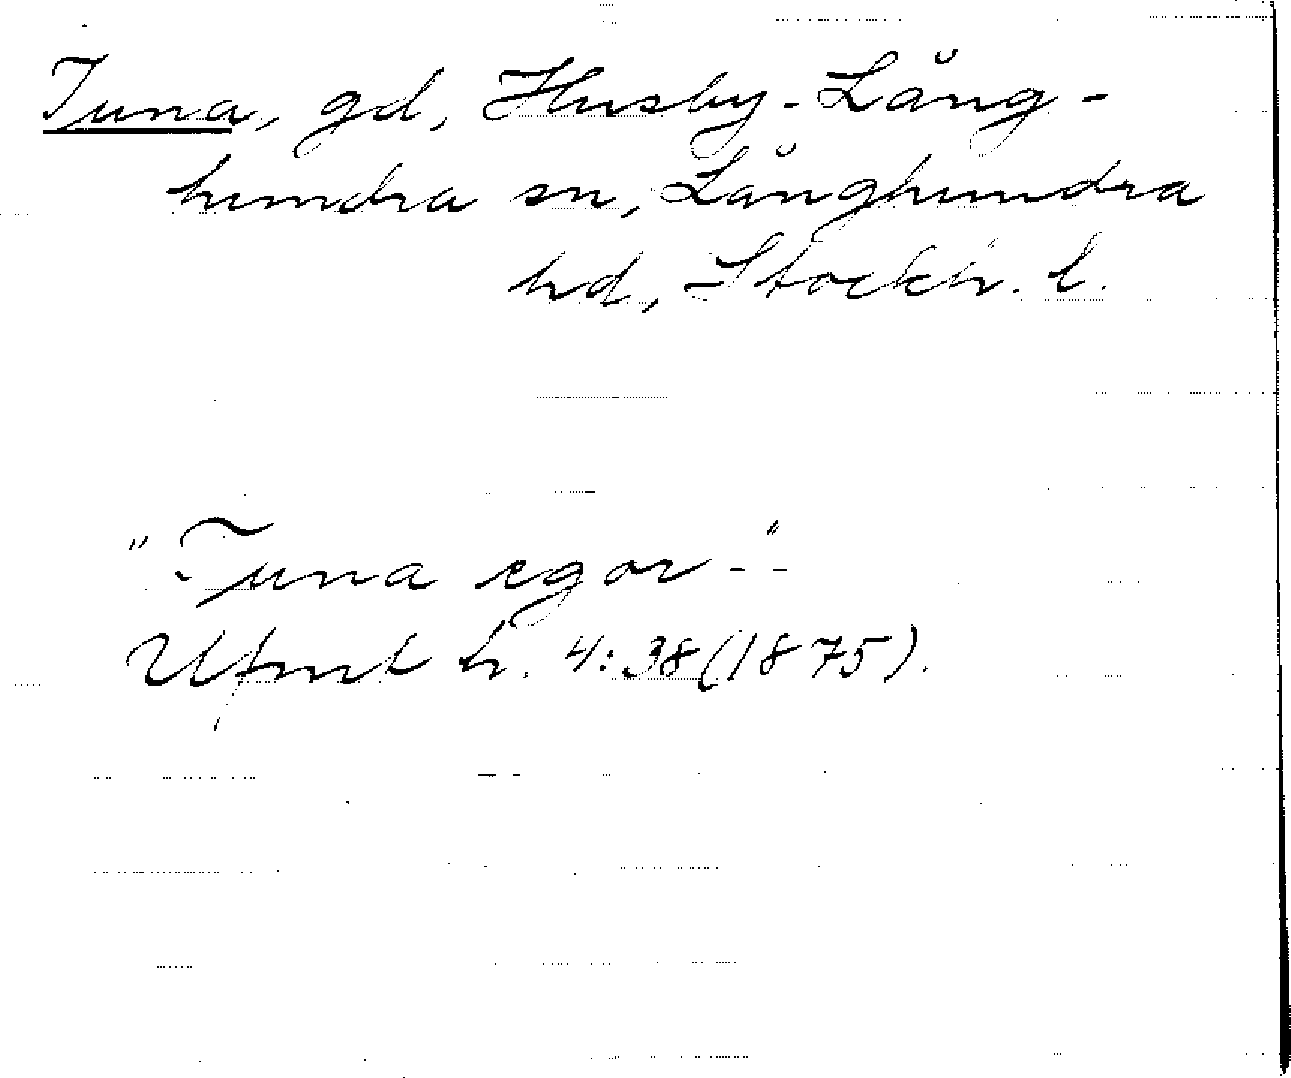 Tuna, gd, Husby-Lång-
hundra sn, Långhundra
hd, Stockh. l.
"Tuna egor - -"
Ufmt h. 4:38 (1875).